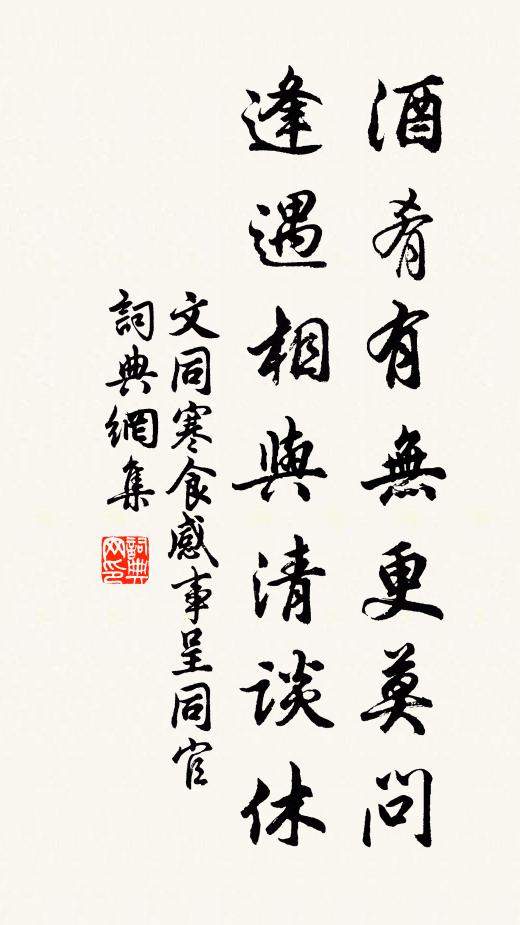 酒肴有無更莫問
逢遇相與清談休
文同寒食感事呈同官
詞典網集
詞典網印